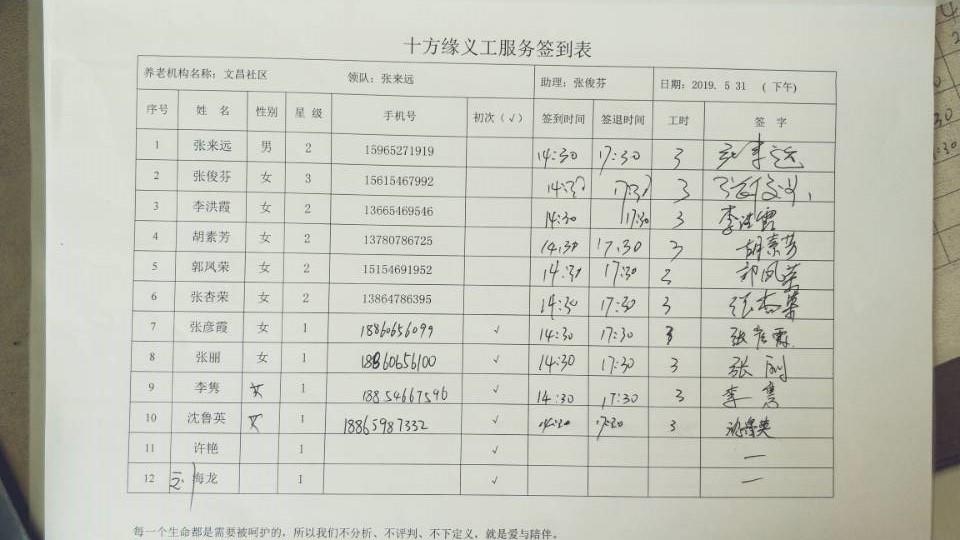 十方缘义工服务签到表
养老机构名称：文昌社区 领队：张来远 助理：张俊芬 日期：2019. 5 31 （下午）
序号 姓 名 性别 星 级 手机号 初次（√） 签到时间 签退时间 工时 签 字
1 张来远 男 2 15965271919 14:30 17:30 3 张来远
2 张俊芬 女 3 15615467992 14:30 17:30 3 张俊芬
3 李洪霞 女 2 13665469546 14:30 17:30 3 李洪霞
4 胡素芳 女 2 13780786725 14:30 17:30 3 胡素芳
5 郭凤荣 女 2 15154691952 14:30 17:30 郭凤荣
6 张杏荣 女 2 13864786395 14:30 17:30 3 张杏荣
7 张彦霞 女 1 18860656099 √ 14:30 17:30 3 张彦霞
8 张丽 女 1 18860656100 √ 14:30 17:30 3 张丽
9 李隽 女 1 18854667596 √ 14:30 17:30 3 李隽
10 沈鲁英 女 1 18865987332 √ 14:30 17:30 3 沈鲁英
11 许艳 1 √ —
12 海龙 1 √ —
每一个生命都是需要被呵护的，所以我们不分析、不评判、不下定义，就是爱与陪伴。